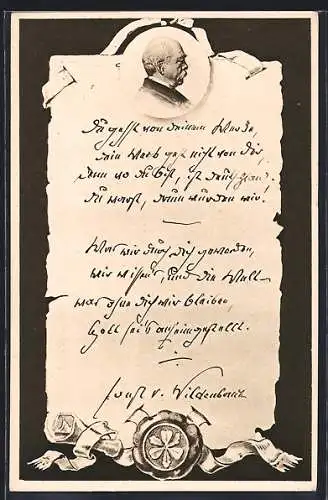 Du gehst von deinem Werke,
dein Werk geht nicht von dir,
denn wo du bist, ist Deutschland.
du warst, drum wurden wir!
Was wir durch dich geworden,
wir wissen's und die Welt –
was ohne dich wir bleiben,
Gott sei's anheimgestellt.
Ernst v. Wildenbruch